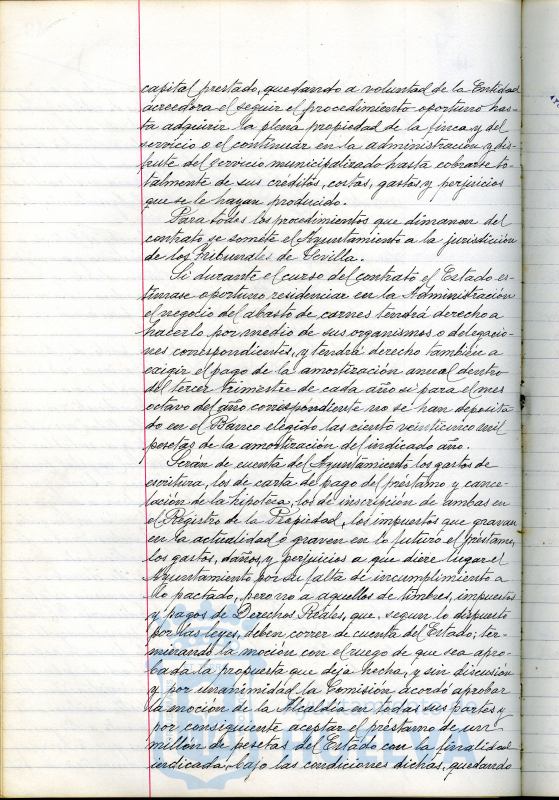 capital prestado, quedando a voluntad de la Entidad
acreedora el seguir el procedimiento oportuno has-
ta adquirir la plena propiedad de la finca y del
servicio o el continuar en la administración y dis-
frute del servicio municipalizado hasta cobrarse to-
talmente de sus créditos, costas, gastos, y perjuicios
que se le hayan producido.
Para todos los procedimientos que dimanan del
contrato se somete el Ayuntamiento a la jurisdición
de los Tribunales de Sevilla.
Si durante el curso del contrato el Estado es-
timase oportuno residenciar en la Administración
el negocio del abasto de carnes tendrá derecho a
hacerlo por medio de sus organismos o delegacio-
nes correspondientes, y tendrá derecho también a
exigir el pago de la amortización anual dentro
del tercer trimestre de cada año si para el mes
octavo del año correspondiente no se han deposita-
do en el Banco elegido las ciento veinticinco mil
pesetas de la amortización del indicado año.
Serán de cuenta del Ayuntamiento los gastos de
escritura, los de carta de pago del préstamo y cance-
lación de la hipoteca, los de inscripción de ambas en
el Registro de la Propiedad, los impuestos que gravan
en la actualidad o graven en lo futuro el préstamo,
los gastos, daños, y perjuicios a que diere lugar el
Ayuntamiento por su falta de incumplimiento a
lo pactado, pero no a aquellos de timbres, impuestos
y pagos de Derechos Reales, que, segun lo dispuesto
por las leyes, deben correr de cuenta del Estado; ter-
minando la moción con el ruego de que sea apro-
bada la propuesta que deja hecha, y sin discusión
y por unanimidad la Comisión acordó aprobar
la moción de la Alcaldia en todas sus partes y
por consiguiente aceptar el préstamo de un
millón de pesetas del Estado con la finalidad
indicada, bajo las condiciones dichas, quedando